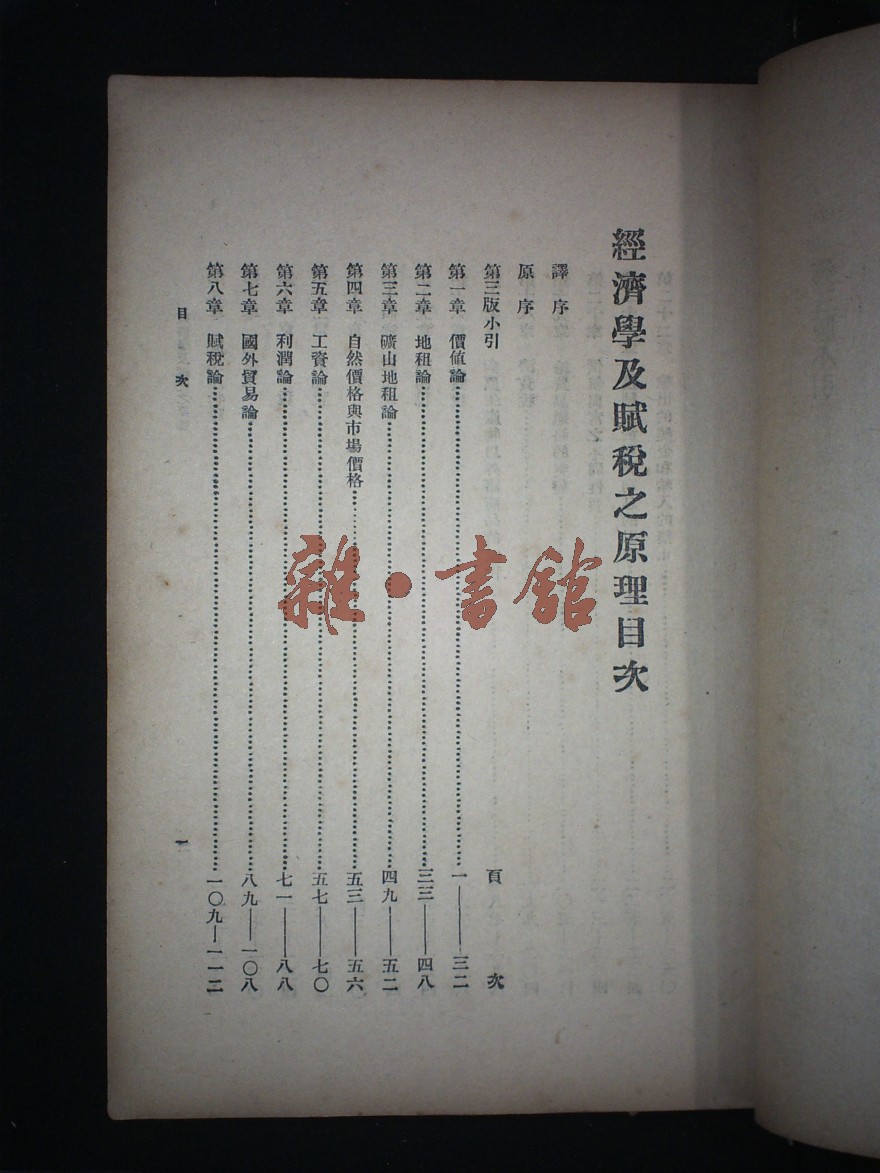 經濟學及賦稅之原理目次
譯序
原序
第三版小引 頁次
第一章 價值論 一——三二
第二章 地租論 三三——四八
第三章 礦山地租論 四九——五二
第四章 自然價格與市場價格 五三——五六
第五章 工資論 五七——七〇
第六章 利潤論 七一——八八
第七章 國外貿易論 八九——一〇八
第八章 賦稅論 一〇九——一一二
目次 一
雜·書館